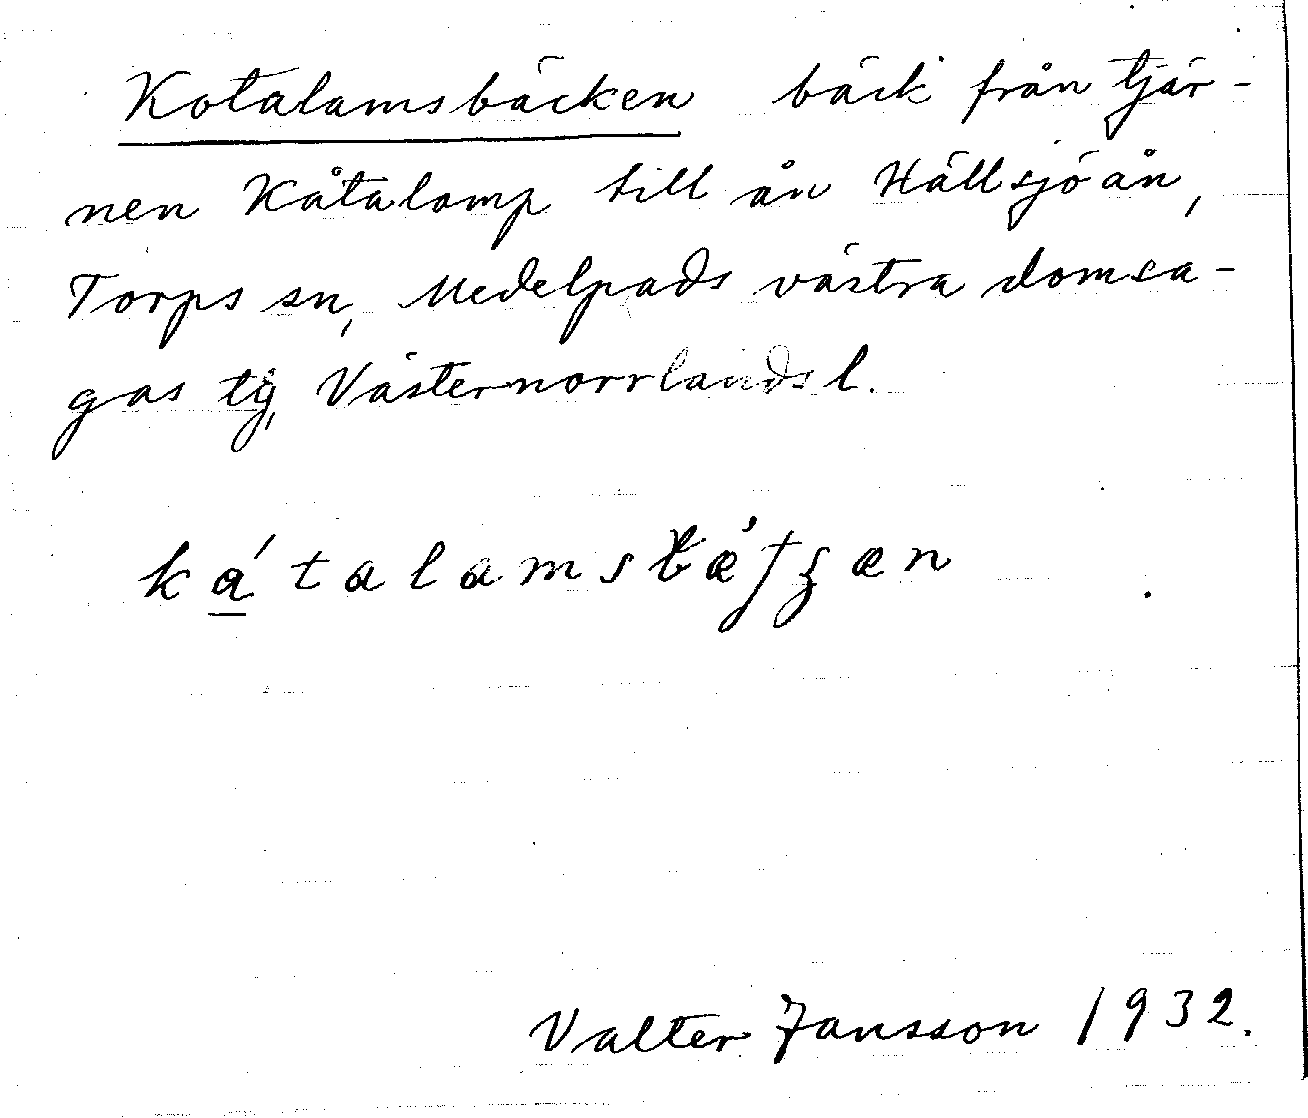 Kotalamsbäcken bäck från tjär-
nen Kåtalamp till ån Hällsjöån,
Torps sn, Medelpads västra domsa-
gas tg, Västernorrlands l.
ká̱talamsbǽtʒæn
Valter Jansson 1932.